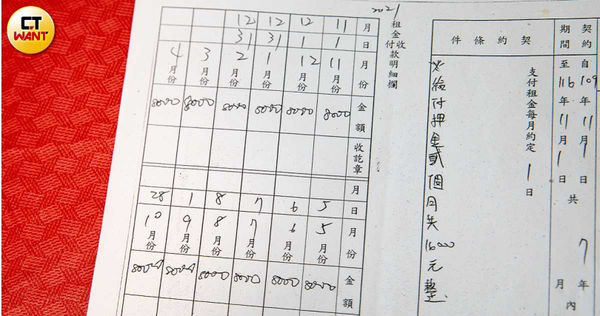 CT
WANT
契約期間
自109年11月1日
至116年11月1日共7年 月內
件條約契
支付租金每月約定1日
給付押金貳個月共16000元整
2021
租金收付款明細欄
月 11 12 12 12
日 1 1 31 31
月份 11 12 1 2 3 4
金額 8000 8000 8000 8000 8000 8000
收訖章
月
日 5 6 7 8 1 28
月份 5 6 7 8 9 10
金額 8000 8000 8000 8000 8000 8000